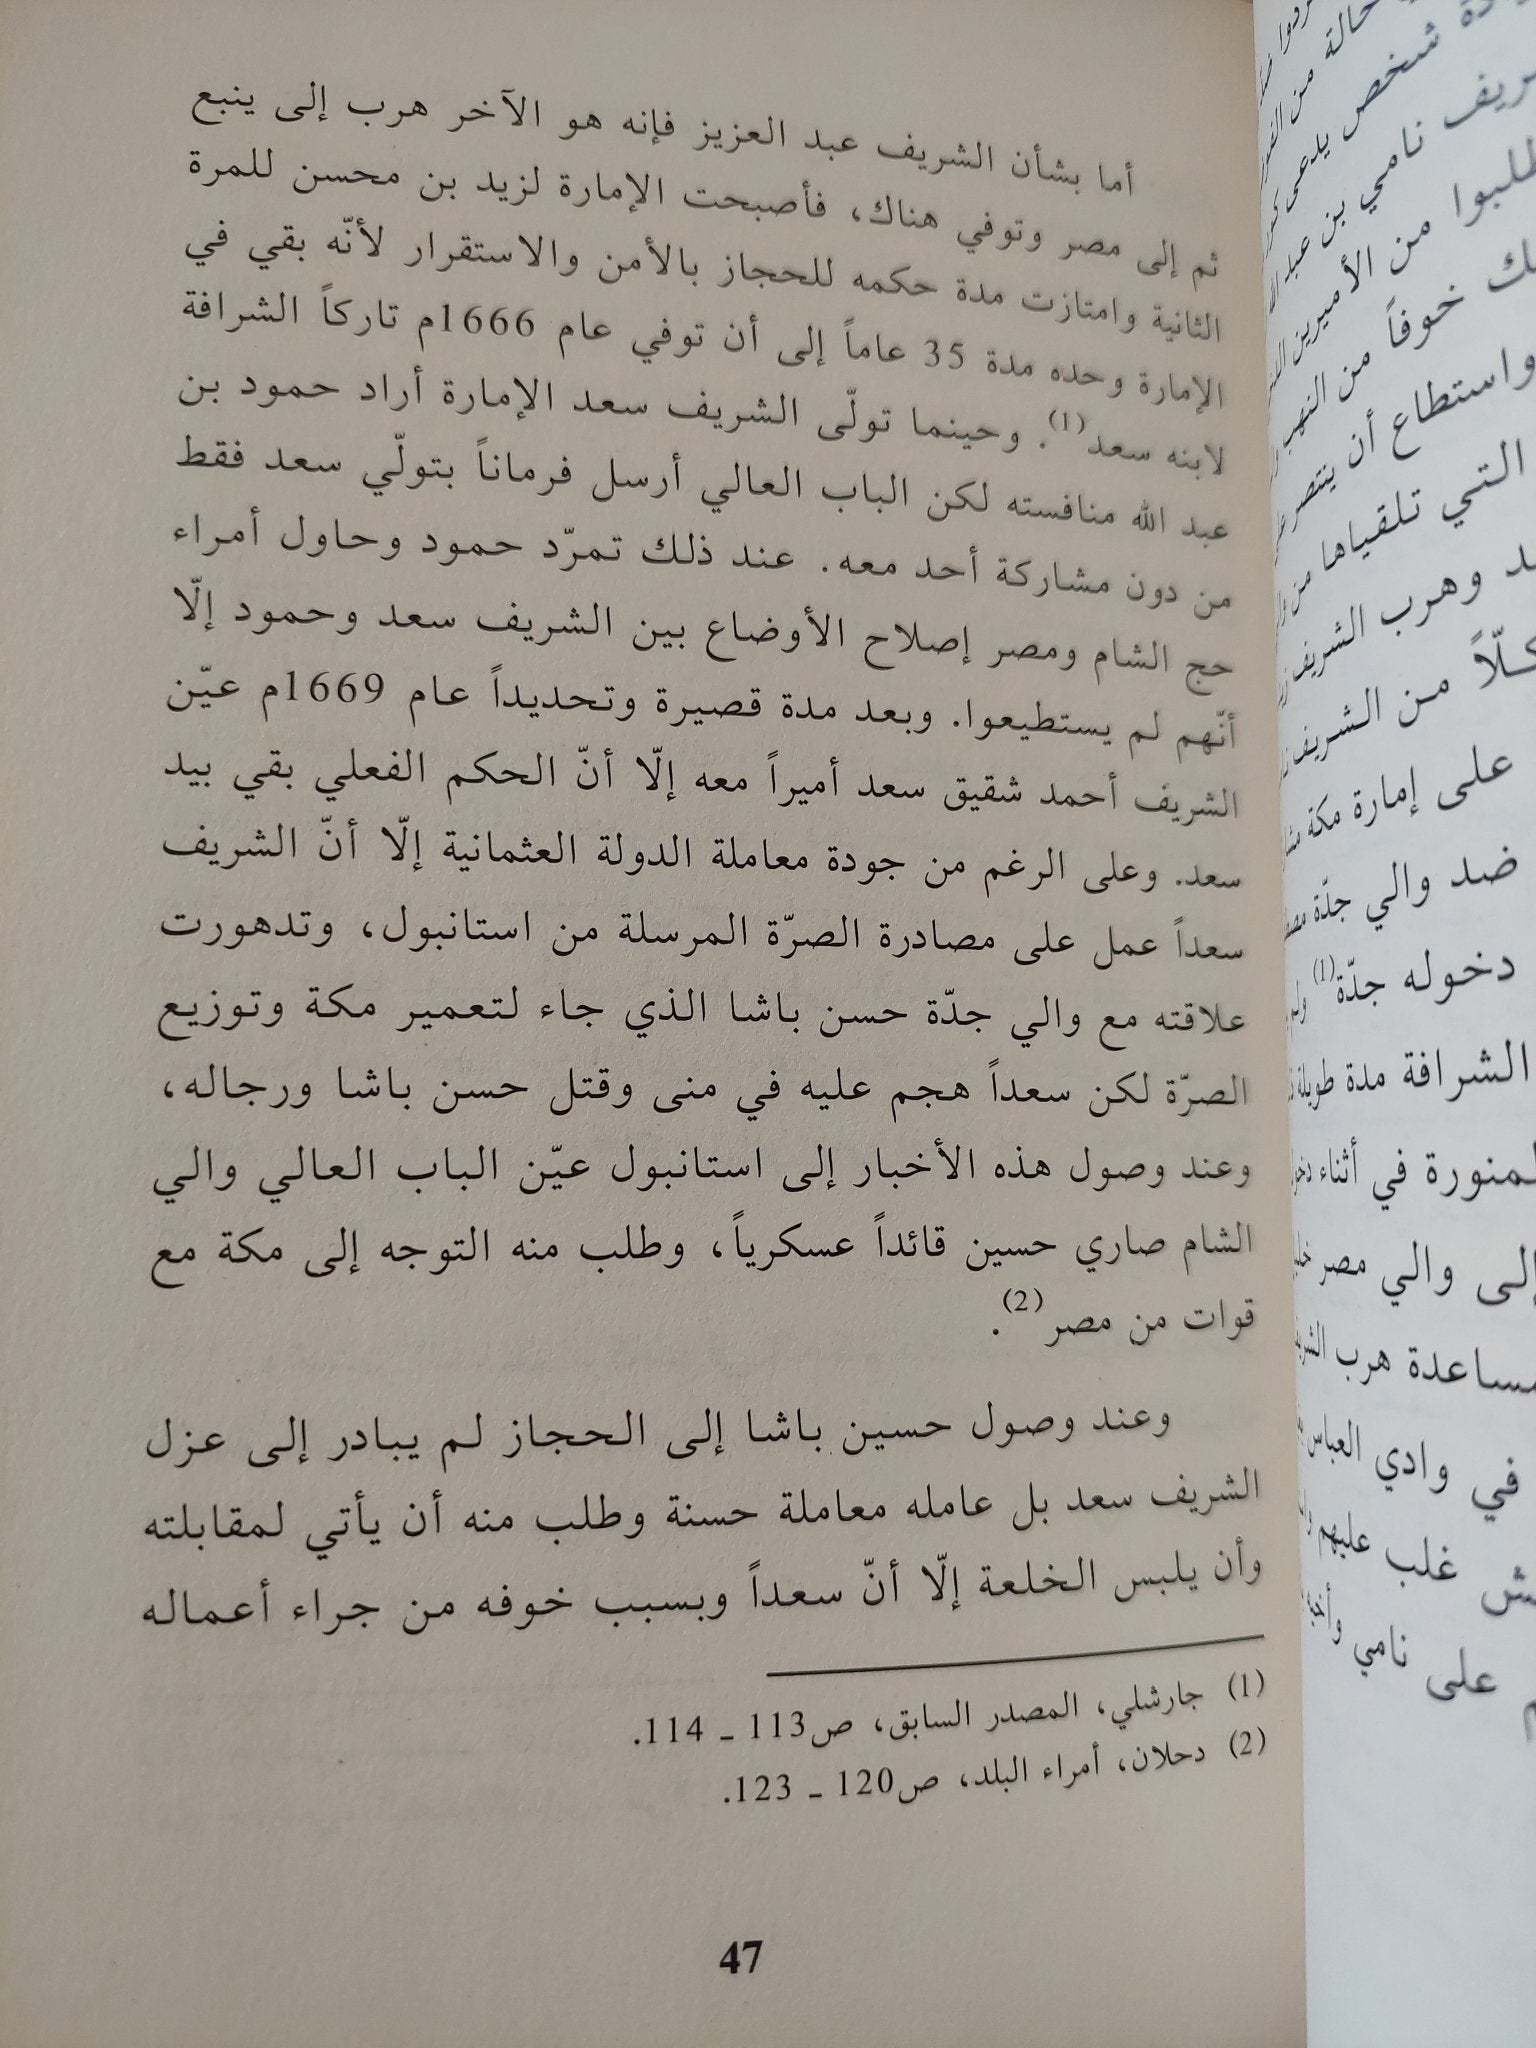 أما بشأن الشريف عبد العزيز فإنه هو الآخر هرب إلى ينبع
ثم إلى مصر وتوفي هناك، فأصبحت الإمارة لزيد بن محسن للمرة
الثانية وامتازت مدة حكمه للحجاز بالأمن والاستقرار لأنّه بقي في
الإمارة وحده مدة 35 عاماً إلى أن توفي عام 1666م تاركاً الشرافة
لابنه سعد(1). وحينما تولّى الشريف سعد الإمارة أراد حمود بن
عبد الله منافسته لكن الباب العالي أرسل فرماناً بتولّي سعد فقط
من دون مشاركة أحد معه. عند ذلك تمرّد حمود وحاول أمراء
حج الشام ومصر إصلاح الأوضاع بين الشريف سعد وحمود إلّا
أنّهم لم يستطيعوا. وبعد مدة قصيرة وتحديداً عام 1669م عيّن
الشريف أحمد شقيق سعد أميراً معه إلّا أنّ الحكم الفعلي بقي بيد
سعد. وعلى الرغم من جودة معاملة الدولة العثمانية إلّا أنّ الشريف
سعداً عمل على مصادرة الصرّة المرسلة من استانبول، وتدهورت
علاقته مع والي جدّة حسن باشا الذي جاء لتعمير مكة وتوزيع
الصرّة لكن سعداً هجم عليه في منى وقتل حسن باشا ورجاله،
وعند وصول هذه الأخبار إلى استانبول عيّن الباب العالي والي
الشام صاري حسين قائداً عسكرياً، وطلب منه التوجه إلى مكة مع
قوات من مصر(2).
وعند وصول حسين باشا إلى الحجاز لم يبادر إلى عزل
الشريف سعد بل عامله معاملة حسنة وطلب منه أن يأتي لمقابلته
وأن يلبس الخلعة إلّا أنّ سعداً وبسبب خوفه من جراء أعماله
(1) جارشلي، المصدر السابق، ص113 ـ 114.
(2) دحلان، أمراء البلد، ص120 ـ 123.
47
حالة من
شخص يدعى
نامي بن عبد
من الأميرين
خوفاً من النهب
واستطاع أن ينتصر
التي تلقياها من
وهرب الشريف
كلّاً من الشريف
على إمارة مكة
ضد والي جدّة
دخوله جدّة(1) ولم
الشرافة مدة طويلة
في أثناء
إلى والي مصر
هرب
في وادي العباس
غلب عليهم
على نامي